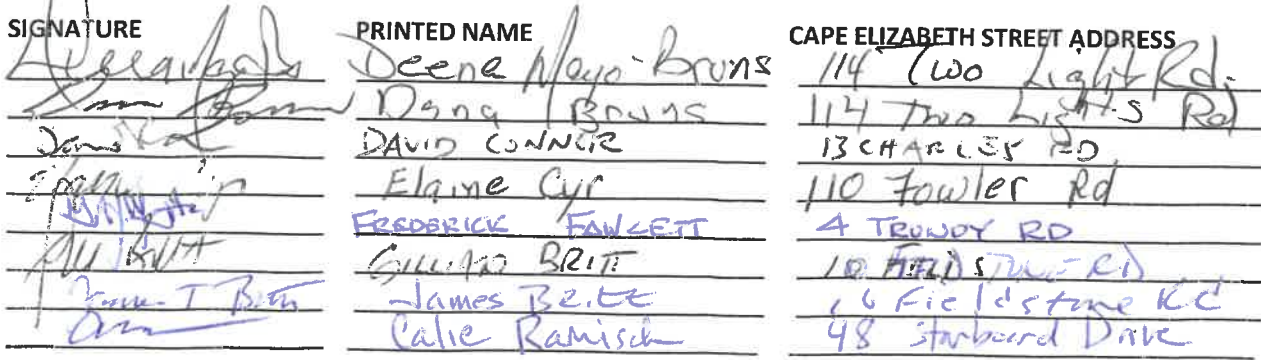 SIGNATURE PRINTED NAME CAPE ELIZABETH STREET ADDRESS
Deena Mayo-Bruns 114 Two Light Rd.
Dana Bruns 114 Two Lights Rd
DAVID CONNER 13 CHARLES RD
Elaine Cyr 110 Fowler Rd
FREDERICK FAWCETT 4 TRUNDY RD
Jill Britt GILLIAN BRITT 10 FIELDSTONE RD
James T Britt James Britt Fieldstone Rd
Calie Ramisch 48 Starboard Drive